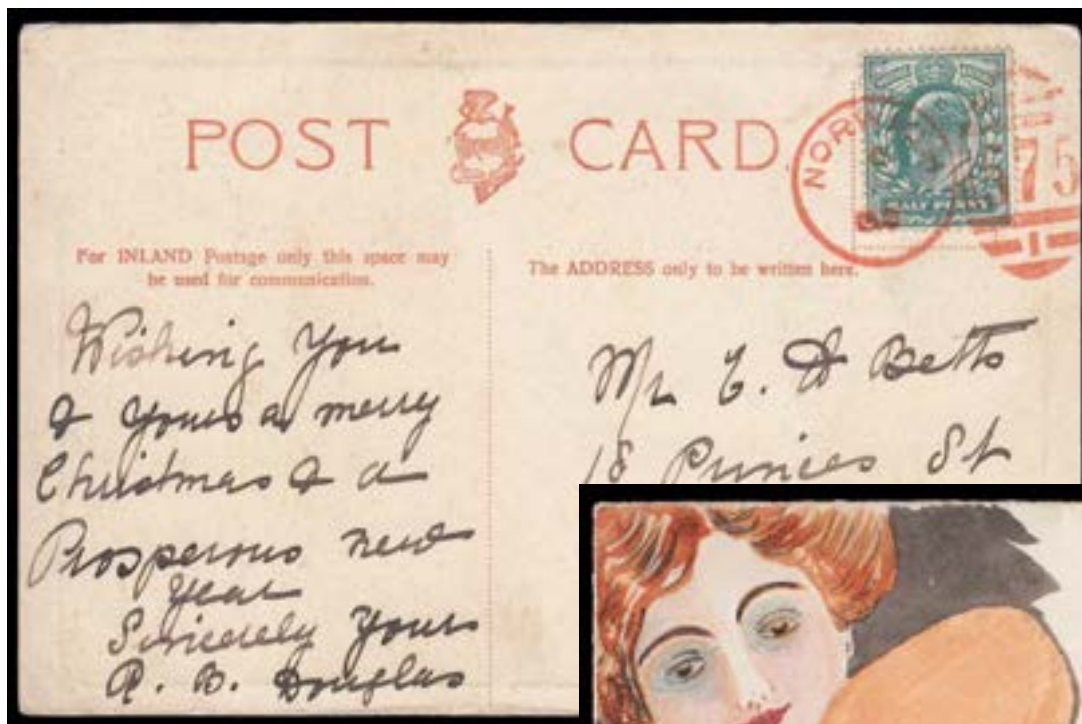 POST CARD
For INLAND Postage only this space may
be used for communication.
The ADDRESS only to be written here.
HALF PENNY
75
Wishing You
& yours a merry
Christmas & a
Prosperous new
Year
Sincerely Yours
R. B. Douglas
Mr E. A Betts
18 Princes St